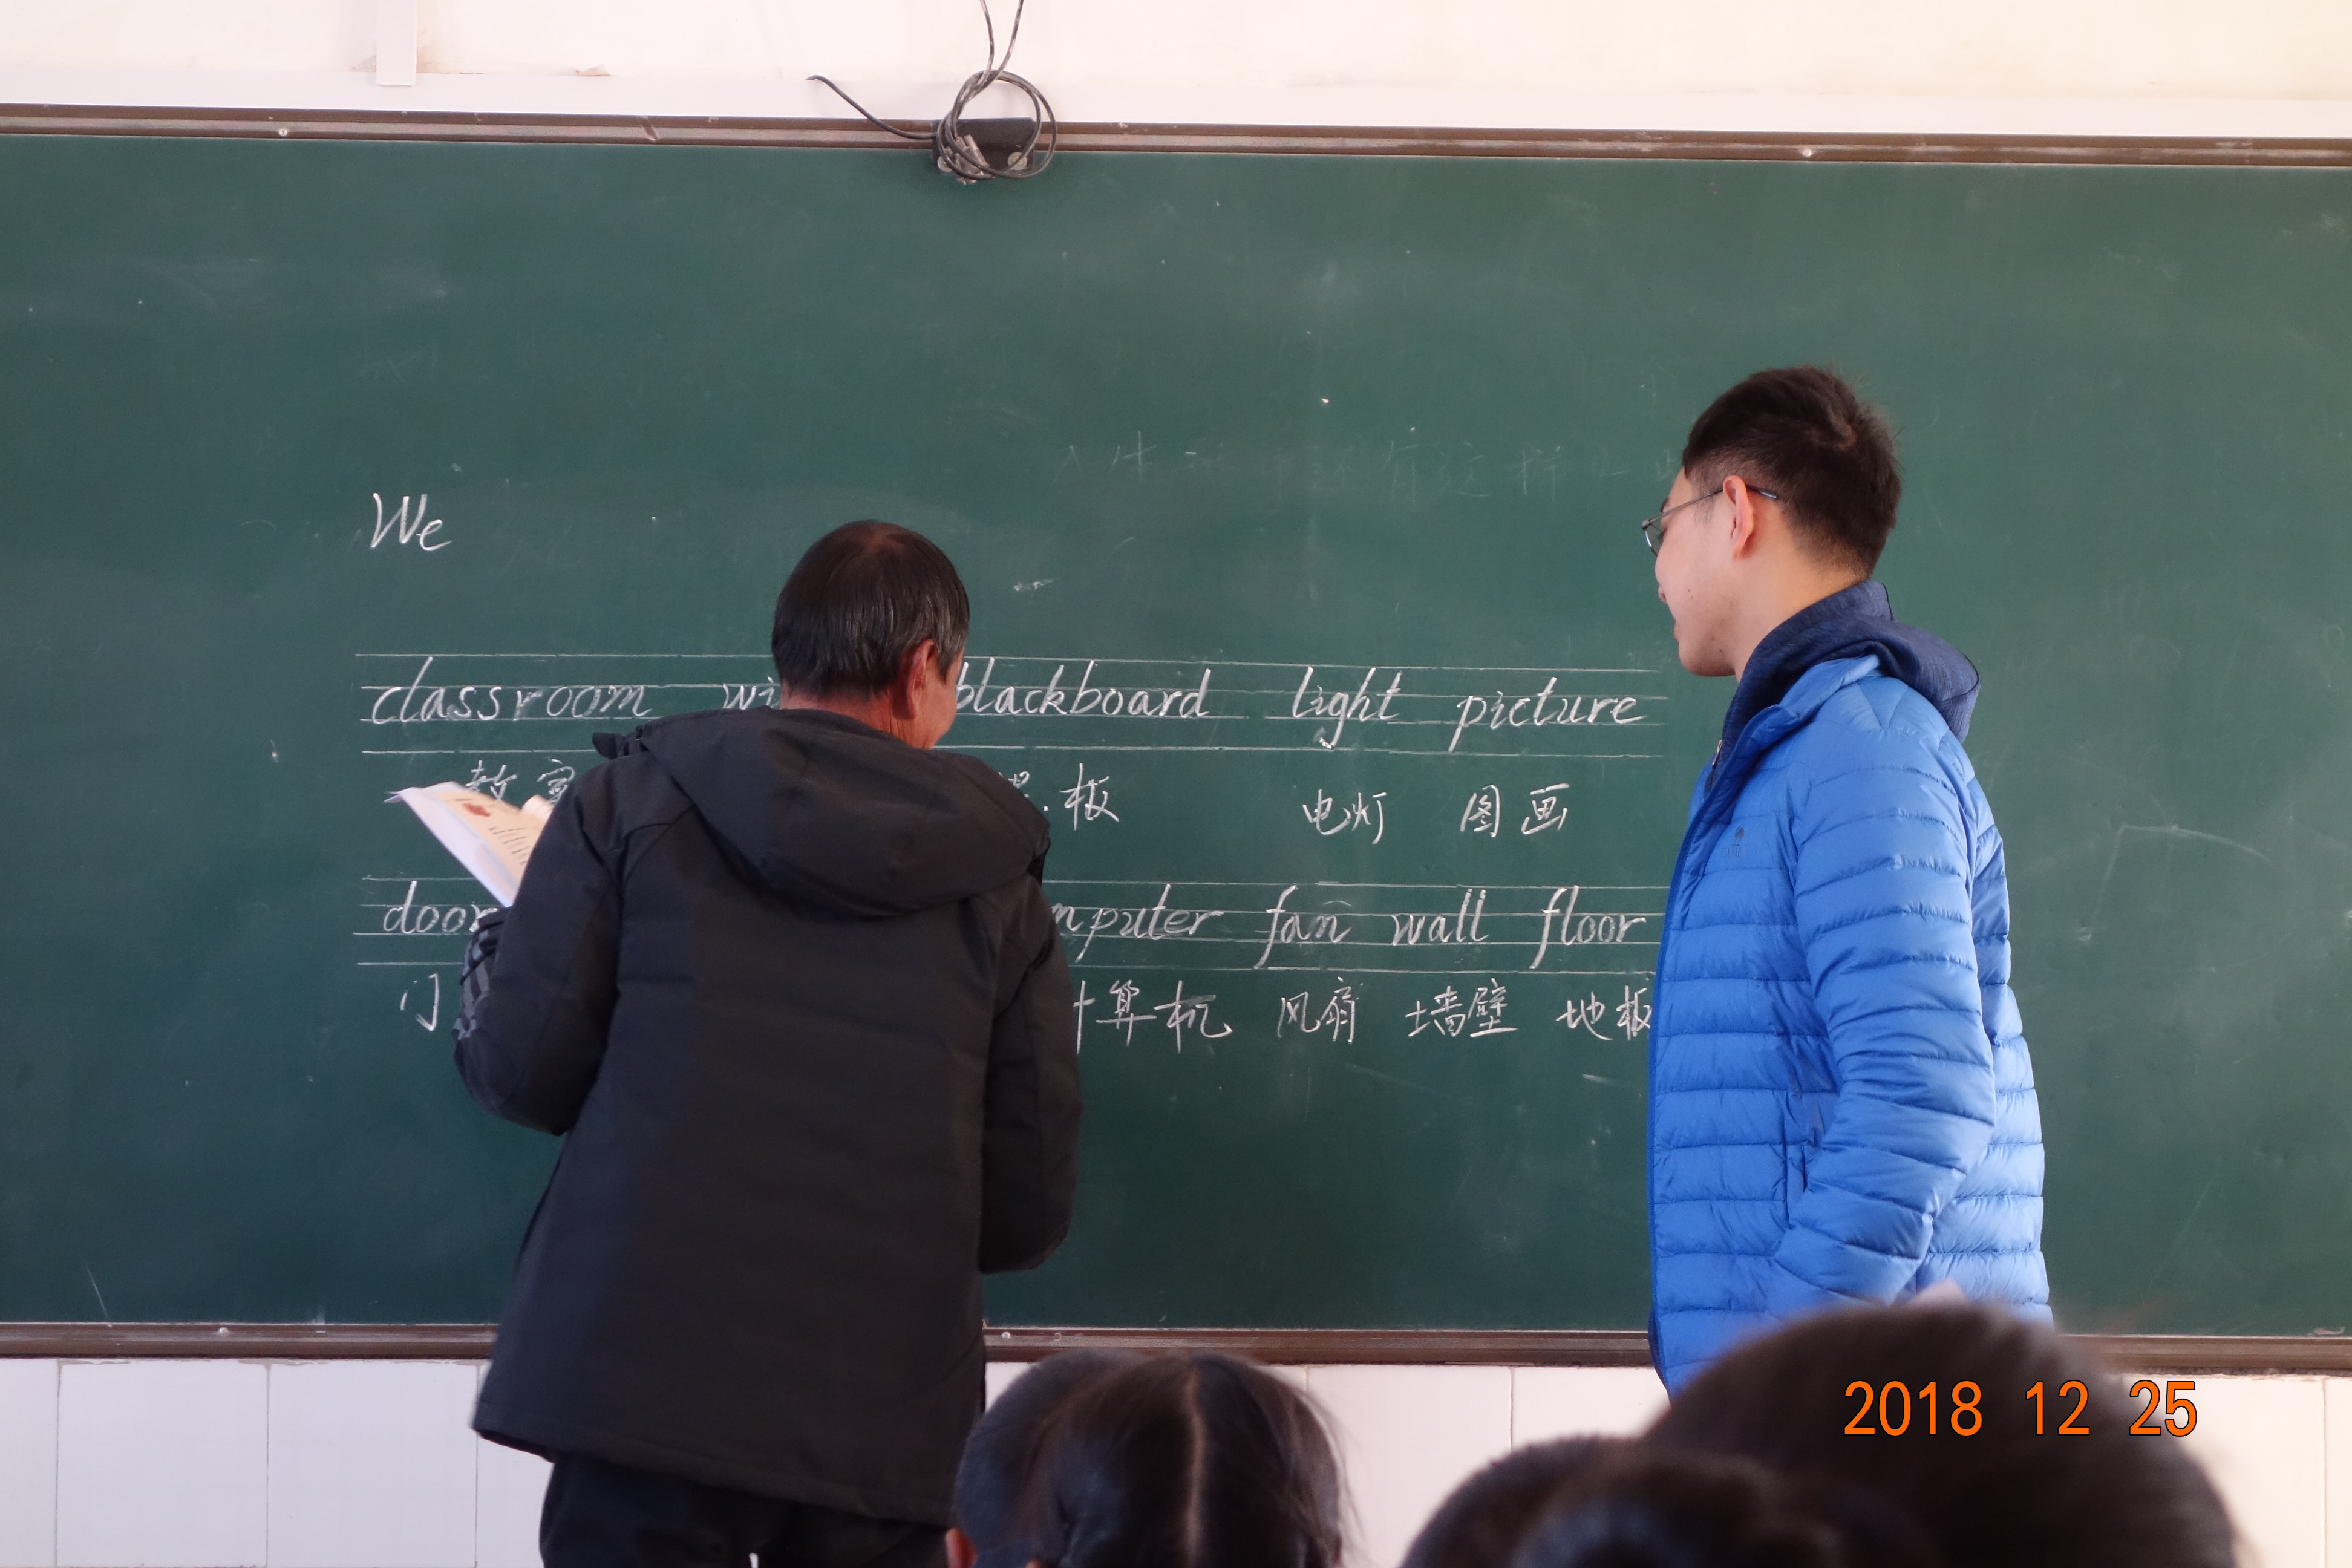 We
classroom blackboard light picture
教室 板 电灯 图画
door fan wall floor
门 算机 风扇 墙壁 地板
2018 12 25